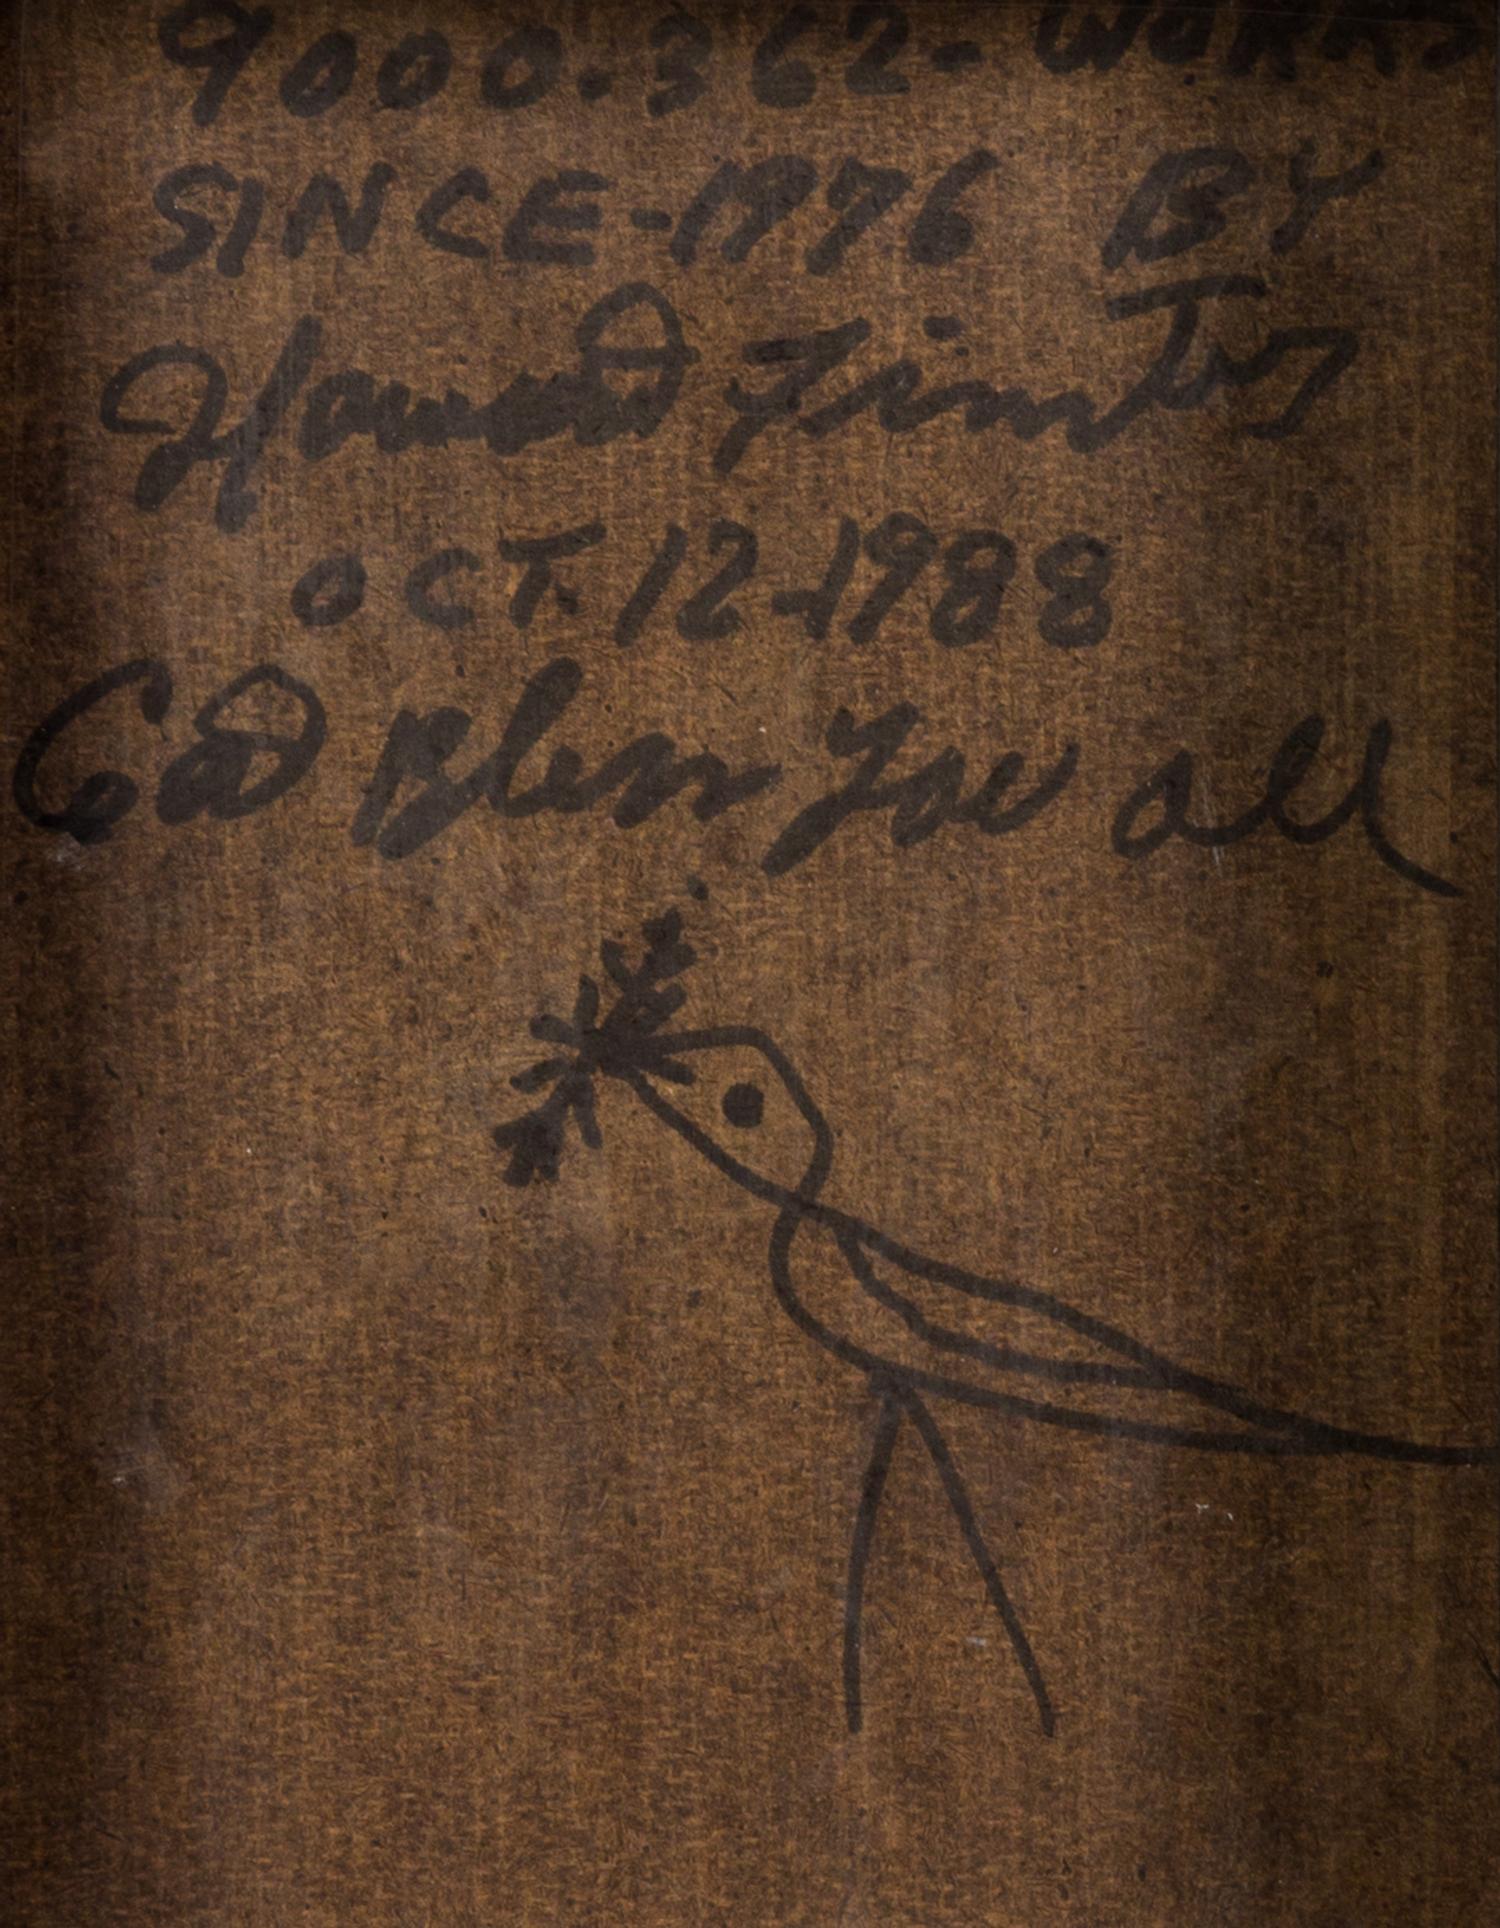 9000.362- WORKS
SINCE-1976 BY
Howard Finster
OCT. 12-1988
God Bless you all